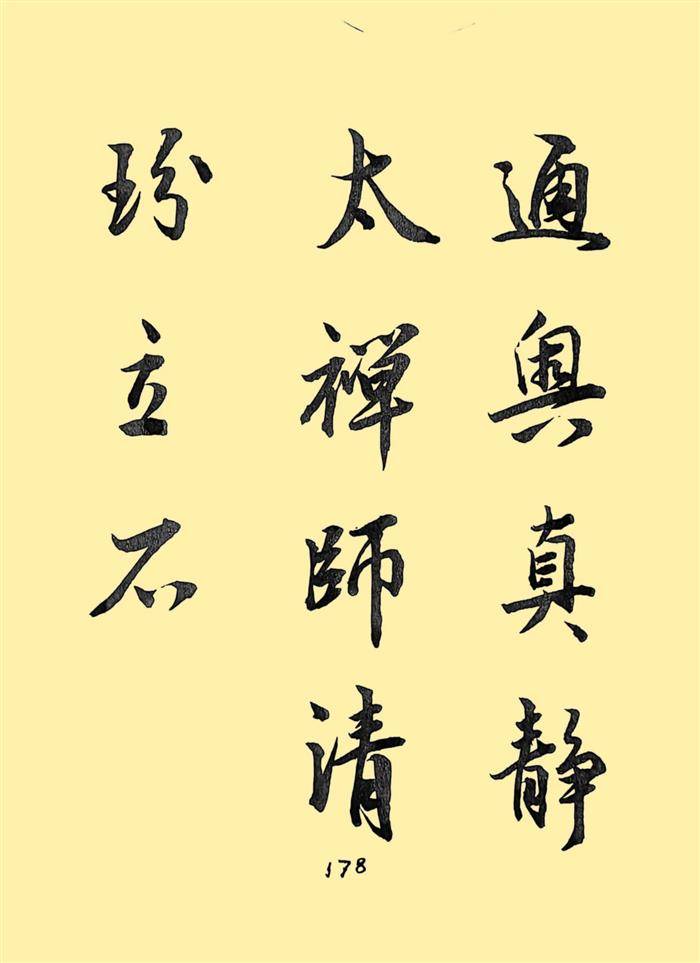 通奥真静
太禅師清
玢立石
178